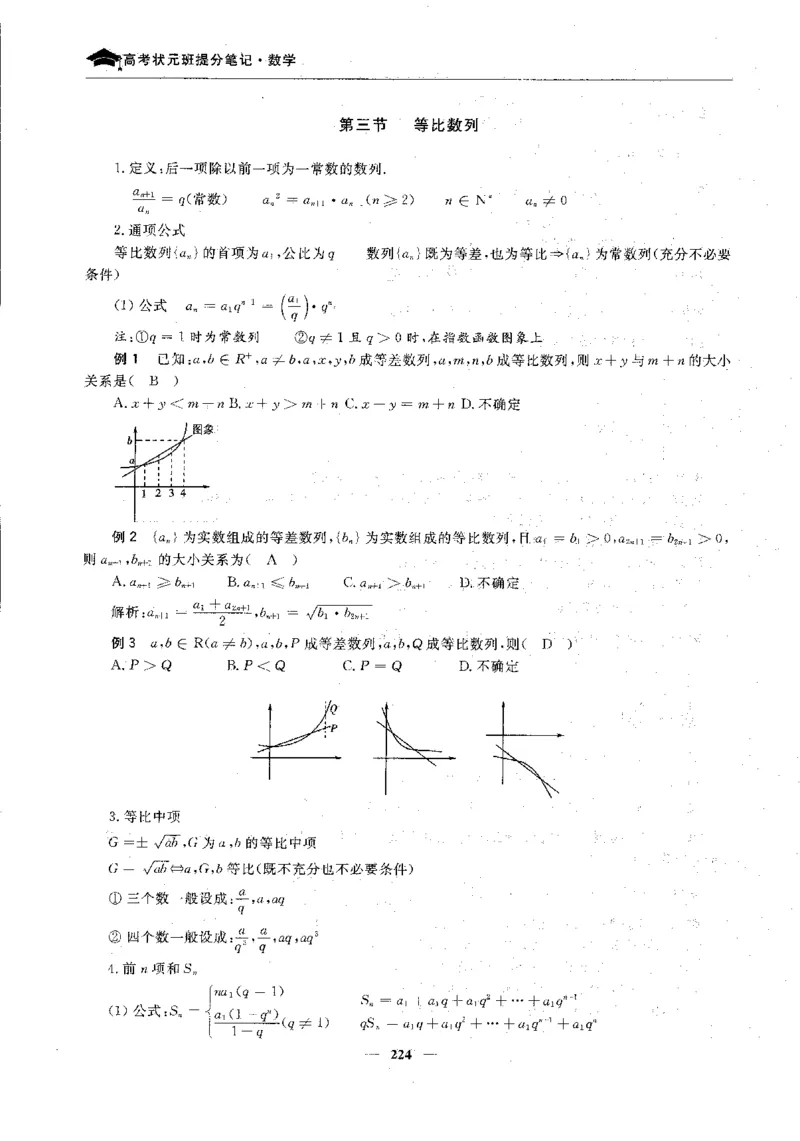 高考状元班提分笔记·数学
第三节 等比数列
1.定义:后一项除以前一项为一常数的数列.
aₙ₊₁/aₙ = q(常数) aₙ² = aₙ₊₁·aₙ (n≥2) n∈N* aₙ≠0
2.通项公式
等比数列{aₙ}的首项为a₁,公比为q 数列{aₙ}既为等差,也为等比⇒{aₙ}为常数列(充分不必要
条件)
(1)公式 aₙ = a₁qⁿ⁻¹ = (a₁/q)·qⁿ
注:①q = 1时为常数列 ②q≠1且q>0时,在指数函数图象上
例1 已知:a,b∈R⁺,a≠b,a,x,y,b成等差数列,a,m,n,b成等比数列,则x+y与m+n的大小
关系是( B )
A.x+y<m+n B.x+y>m+n C.x-y=m+n D.不确定
图象
b
a
1 2 3 4
例2 {aₙ}为实数组成的等差数列,{bₙ}为实数组成的等比数列,且a₁ = b₁>0,a₂ₙ₊₁ = b₂ₙ₊₁>0,
则aₙ₊₁,bₙ₊₁的大小关系为( A )
A.aₙ₊₁≥bₙ₊₁ B.aₙ₊₁≤bₙ₊₁ C.aₙ₊₁>bₙ₊₁ D.不确定
解析:aₙ₊₁ = (a₁+a₂ₙ₊₁)/2,bₙ₊₁ = √(b₁·b₂ₙ₊₁)
例3 a,b∈R(a≠b),a,b,P成等差数列,a,b,Q成等比数列.则( D )
A.P>Q B.P<Q C.P=Q D.不确定
Q
P
3.等比中项
G=±√ab,G为a,b的等比中项
G=√ab⇔a,G,b等比(既不充分也不必要条件)
①三个数一般设成:a/q,a,aq
②四个数一般设成:a/q³,a/q,aq,aq³
4.前n项和Sₙ
(1)公式:Sₙ = { na₁(q=1) Sₙ = a₁+a₁q+a₁q²+…+a₁qⁿ⁻¹
a₁(1-qⁿ)/(1-q)(q≠1) qSₙ = a₁q+a₁q²+…+a₁qⁿ⁻¹+a₁qⁿ
— 224 —